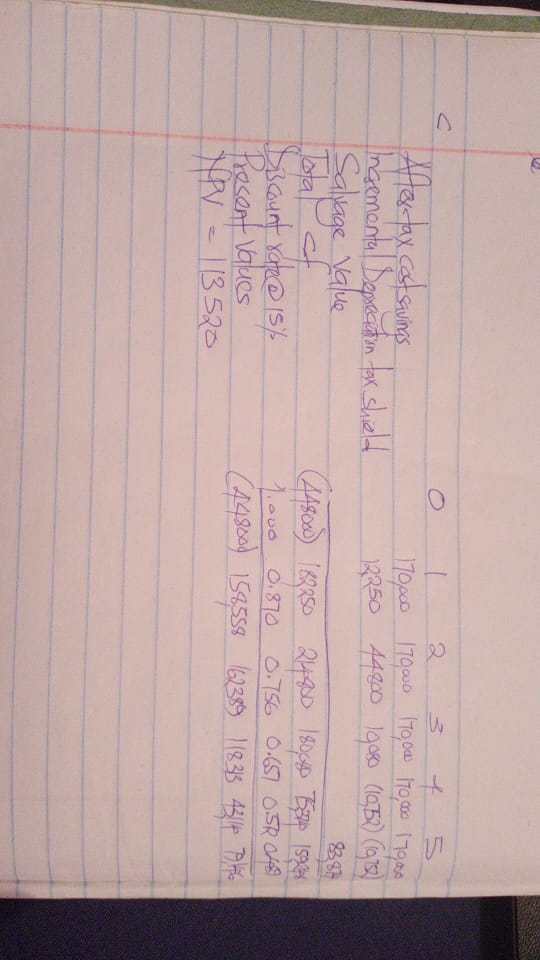 C 0 1 2 3 4 5
After-tax cost savings 170,000 170,000 170,000 170,000 170,000
Incremental Depreciation tax shield 12,250 44800 10,080 (10,752) (10,752)
Salvage Value
Total CF (448000) 182250 214800 180,080
Discount rate@ 15% 1.000 0.870 0.756 0.657
Present Values (448000) 158558 162389
NPV = 113520